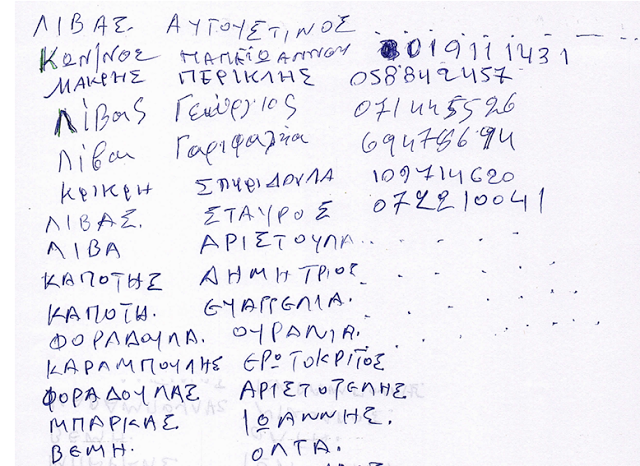 ΛΙΒΑΣ. ΑΥΓΟΥΣΤΙΝΟΣ
ΚΩΝ/ΝΟΣ ΠΑΠΕΙΩΑΝΝΟΥ 019111431
ΜΑΚΡΗΣ ΠΕΡΙΚΛΗΣ 058842457
Λίβας Γεώργιος 071445526
Λίβα Γαριφαλιά
ΚΡΙΚΡΗ ΣΠΥΡΙΔΟΥΛΑ 109714620
ΛΙΒΑΣ. ΣΤΑΥΡΟΣ 072210041
ΛΙΒΑ ΑΡΙΣΤΟΥΛΑ
ΚΑΠΟΤΗΣ ΔΗΜΗΤΡΙΟΣ
ΚΑΠΟΤΗ. ΕΥΑΓΓΕΛΙΑ.
ΦΟΡΑΔΟΥΛΑ. ΟΥΡΑΝΙΑ.
ΚΑΡΑΜΠΟΥΛΗΣ ΕΡΩΤΟΚΡΙΤΟΣ
ΦΟΡΑΔΟΥΛΑΣ ΑΡΙΣΤΟΤΕΛΗΣ
ΜΠΑΡΚΑΣ ΙΩΑΝΝΗΣ.
ΒΕΜΗ. ΟΛΓΑ.